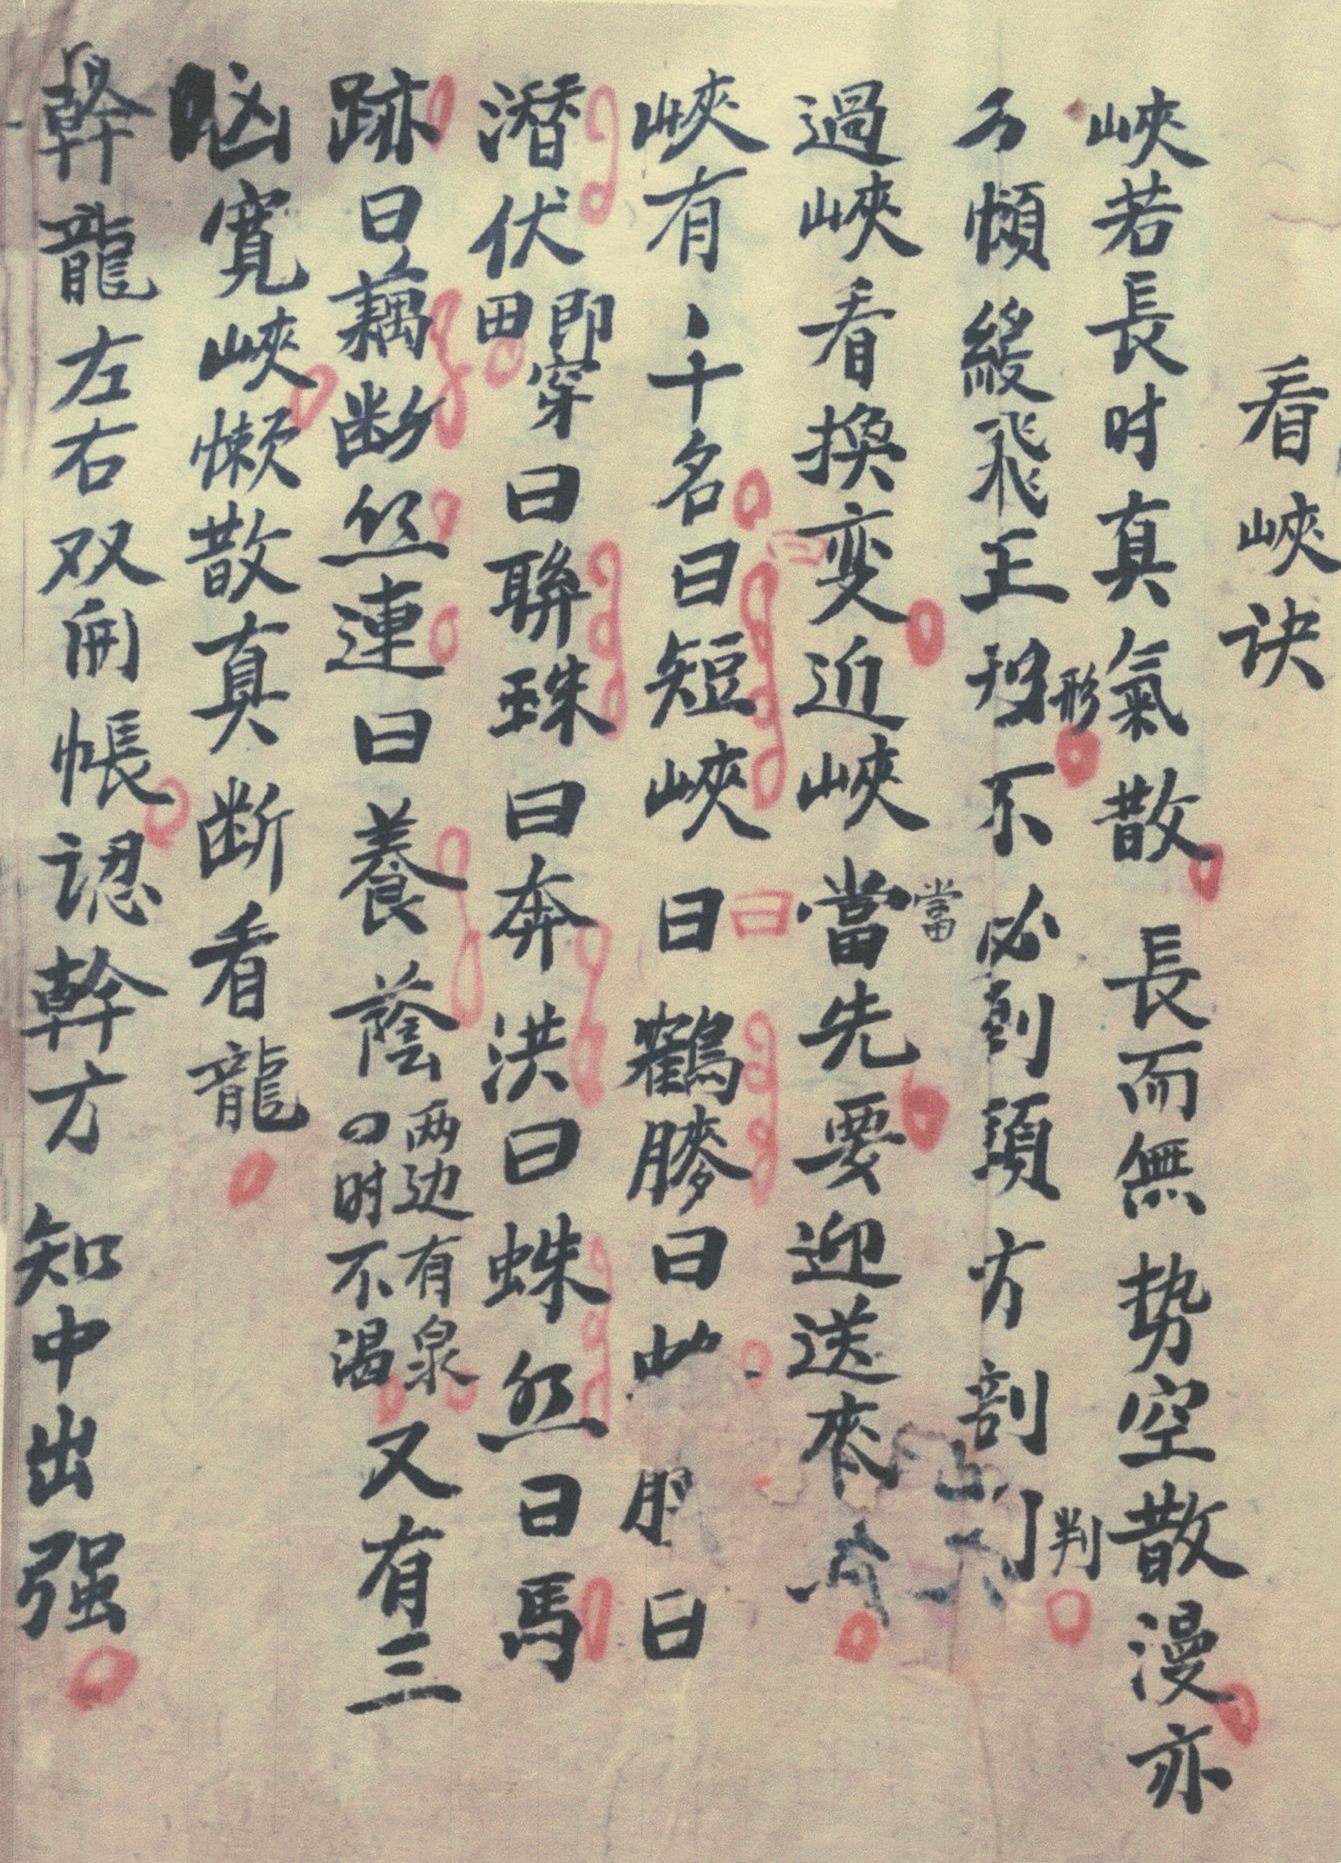 看峽诀
峽若長时真氣散長而無势空散漫亦
傾緩飛正形不必到頭方剖判
過峽看換变近峽當先要迎送來
峽有十名曰短峽曰鶴膝曰曰
潛伏即穿田曰聨珠曰奔洪曰蛛丝曰馬
跡曰藕断丝連曰養蔭两边有泉四时不渴又有三
峽寬峽懒散真断看龍
幹龍左右双開帳認幹方知中出强